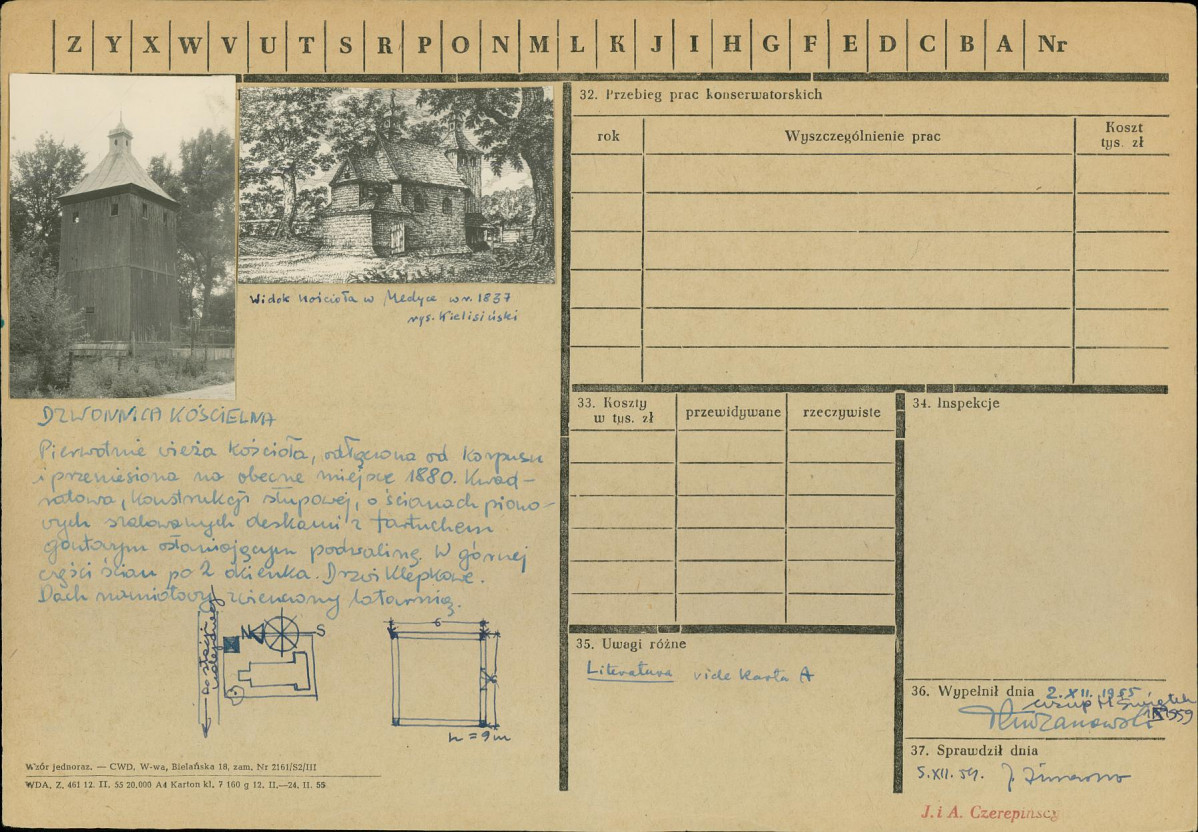 Z Y X W V U T S R P O N M L K J I H G F E D C B A Nr
Widok kościoła w Medyce w r. 1837
rys. Kielisiński
DZWONNICA KOŚCIELNA
Pierwotnie wieża kościoła, odłączona od korpusu
i przeniesiona na obecne miejsce 1880. Kwad-
ratowa, konstrukcji słupowej, o ścianach piono-
wych szalowanych deskami z fartuchem
gontowym osłaniającym podwalinę. W górnej
części ścian po 2 okienka. Drzwi klepkowe.
Dach namiotowy zwieńczony latarnią.
Do stacji kolejowej
N S
6
6
h = 9m
Wzór jednoraz. — CWD, W-wa, Bielańska 18, zam. Nr 2161/S2/III
WDA. Z. 461 12. II. 55 20.000 A4 Karton kl. 7 160 g 12. II.—24. II. 55
32. Przebieg prac konserwatorskich
rok
Wyszczególnienie prac
Koszt
tys. zł
33. Koszty
w tys. zł
przewidywane
rzeczywiste
34. Inspekcje
35. Uwagi różne
Literatura vide karta A
36. Wypełnił dnia 2. XII. 1955
1959
37. Sprawdził dnia
5.XII.59.
J. i A. Czerepińscy